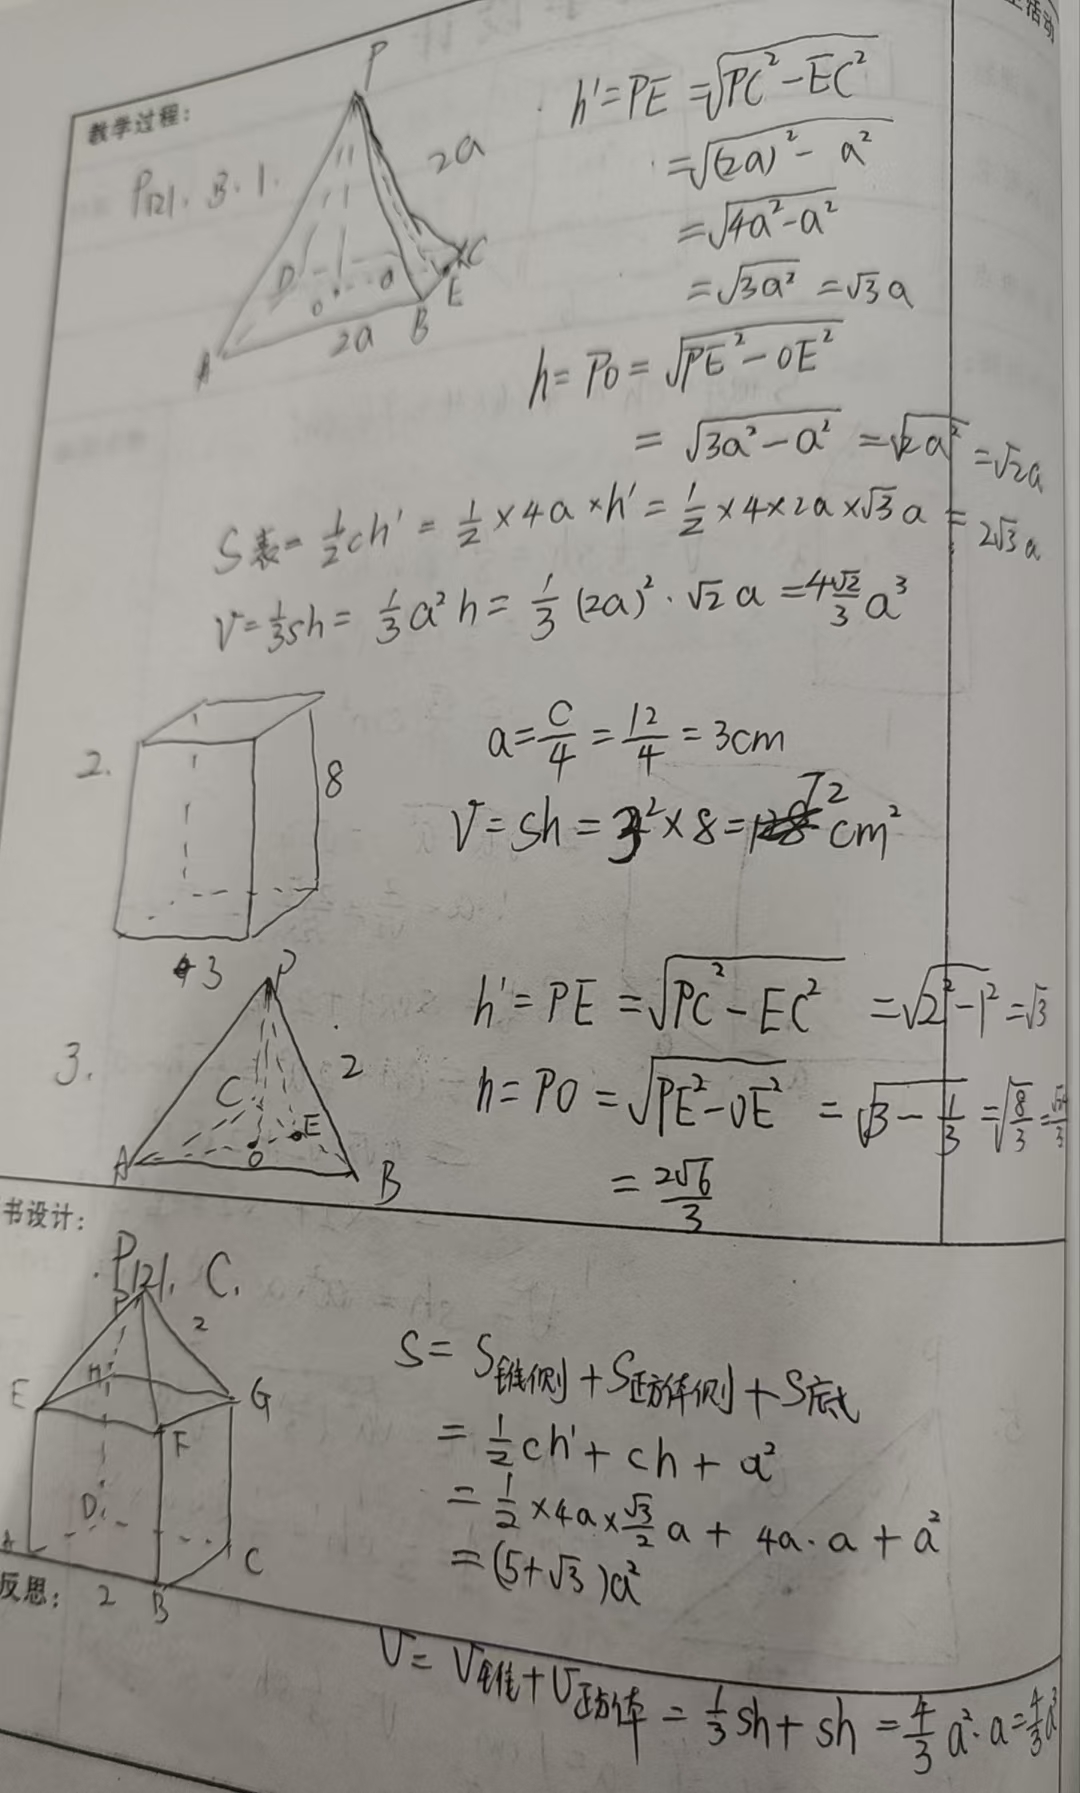 生活动
教学过程：
P121. B. 1.
P
2a
D
C
O
a
E
B
2a
A
h'=PE=√(PC²-EC²)
=√((2a)²-a²)
=√(4a²-a²)
=√(3a²)=√3a
h=PO=√(PE²-OE²)
=√(3a²-a²)=√(2a²)=√2a
S表=½ch'=½×4a×h'=½×4×2a×√3a=2√3a
V=⅓sh=⅓a²h=⅓(2a)²·√2a=4√2/3 a³
2.
8
3
a=C/4=12/4=3cm
V=Sh=3²×8=72cm²
3.
P
2
C
E
O
A
B
h'=PE=√(PC²-EC²)=√(2²-1²)=√3
h=PO=√(PE²-OE²)=√(3-1/3)=√(8/3)
=2√6/3
书设计：
P121. C.
P
2
H
E
G
F
D
A
C
B
2
S=S锥侧+S正方体侧+S底
=½ch'+ch+a²
=½×4a×√3/2 a+4a·a+a²
=(5+√3)a²
反思：
V=V锥+V正方体=⅓sh+sh=4/3 a²·a=4/3 a³